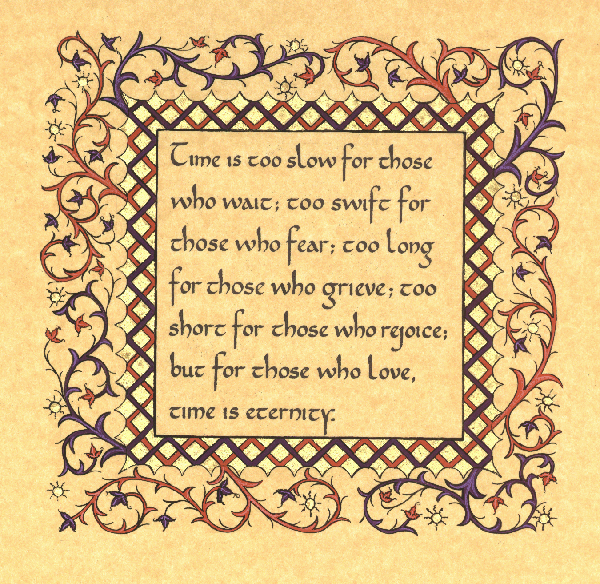 Time is too slow for those
who wait; too swift for
those who fear; too long
for those who grieve; too
short for those who rejoice;
but for those who love,
time is eternity.